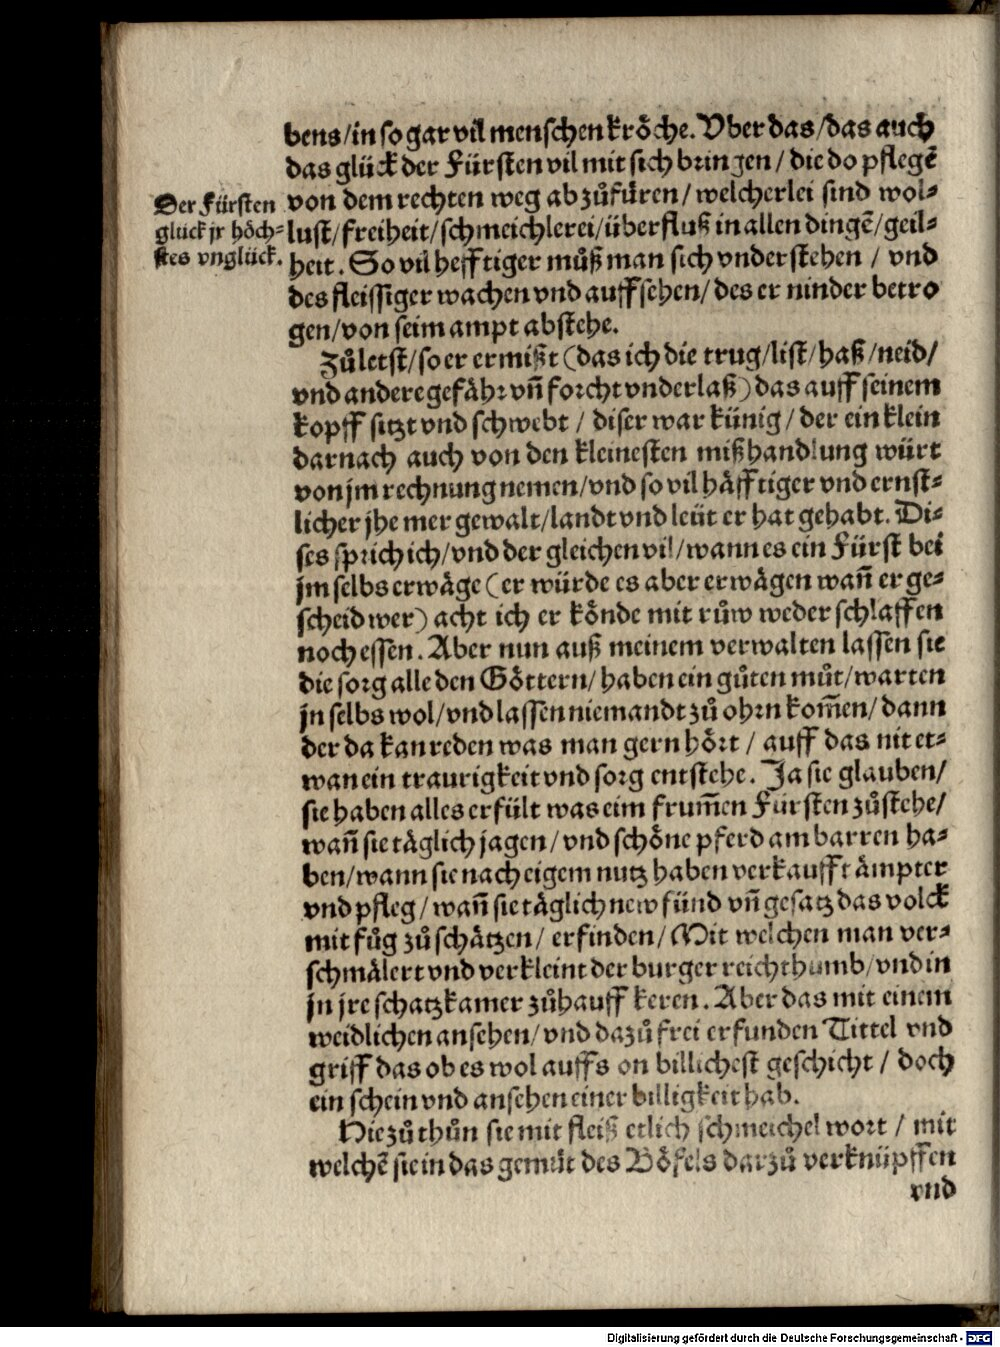 bens/in so gar vil menschen kröche. Vber das/das auch
das glück der Fürsten vil mit sich bringen/die do pflegẽ
von dem rechten weg abzůfüren/welcherlei sind wol⸗
Der Fürsten
glück jr höch⸗
stes vnglück.
lust/freiheit/schmeichlerei/überfluß in allen dingẽ/geil⸗
heit. So vil hefftiger můß man sich vnderstehen / vnd
des fleissiger wachen vnd auffsehen/des er ninder betro
gen/von seim ampt abstehe.
Zůletst/so er ermißt (das ich die trug/list/haß/neid/
vnd andere gefähr vñ forcht vnderlaß) das auff seinem
kopff sitzt vnd schwebt / diser war künig / der ein klein
darnach auch von den kleinesten mißhandlung würt
von jm rechnung nemen/vnd so vil häfftiger vnd ernst⸗
licher jhe mer gewalt/landt vnd leüt er hat gehabt. Di⸗
ses sprich ich/vnd der gleichen vil/wann es ein Fürst bei
jm selbs erwäge (er würde es aber erwägen wañ er ge⸗
scheid wer) acht ich er könde mit růw weder schlaffen
noch essen. Aber nun auß meinem verwalten lassen sie
die sorg alle den Göttern/haben ein gůten můt/warten
jn selbs wol/vnd lassen niemandt zů ohrn kom̃en/dann
der da kan reden was man gern hört / auff das nit et⸗
wan ein traurigkeit vnd sorg entstehe. Ja sie glauben/
sie haben alles erfült was eim frum̃en Fürsten zůstehe/
wañ sie täglich jagen/vnd schöne pferd am barren ha⸗
ben/wann sie nach eigem nutz haben verkaufft ämpter
vnd pfleg/wañ sie täglich new fünd vñ gesatz das volck
mit fůg zůschätzen/ erfinden/ Mit welchen man ver⸗
schmälert vnd verkleint der burger reichthumb/vnd in
jn jre schatzkamer zůhauff keren. Aber das mit einem
weidlichen ansehen/vnd dazů frei erfunden Tittel vnd
griff das ob es wol auffs on billichest geschicht / doch
ein schein vnd ansehen einer billigkeit hab.
Hiezů thůn sie mit fleiß etlich schmeichel wort / mit
welchẽ sie in das gemüt des Böfels darzů verknüpffen
vnd
Digitalisierung gefördert durch die Deutsche Forschungsgemeinschaft - DFG